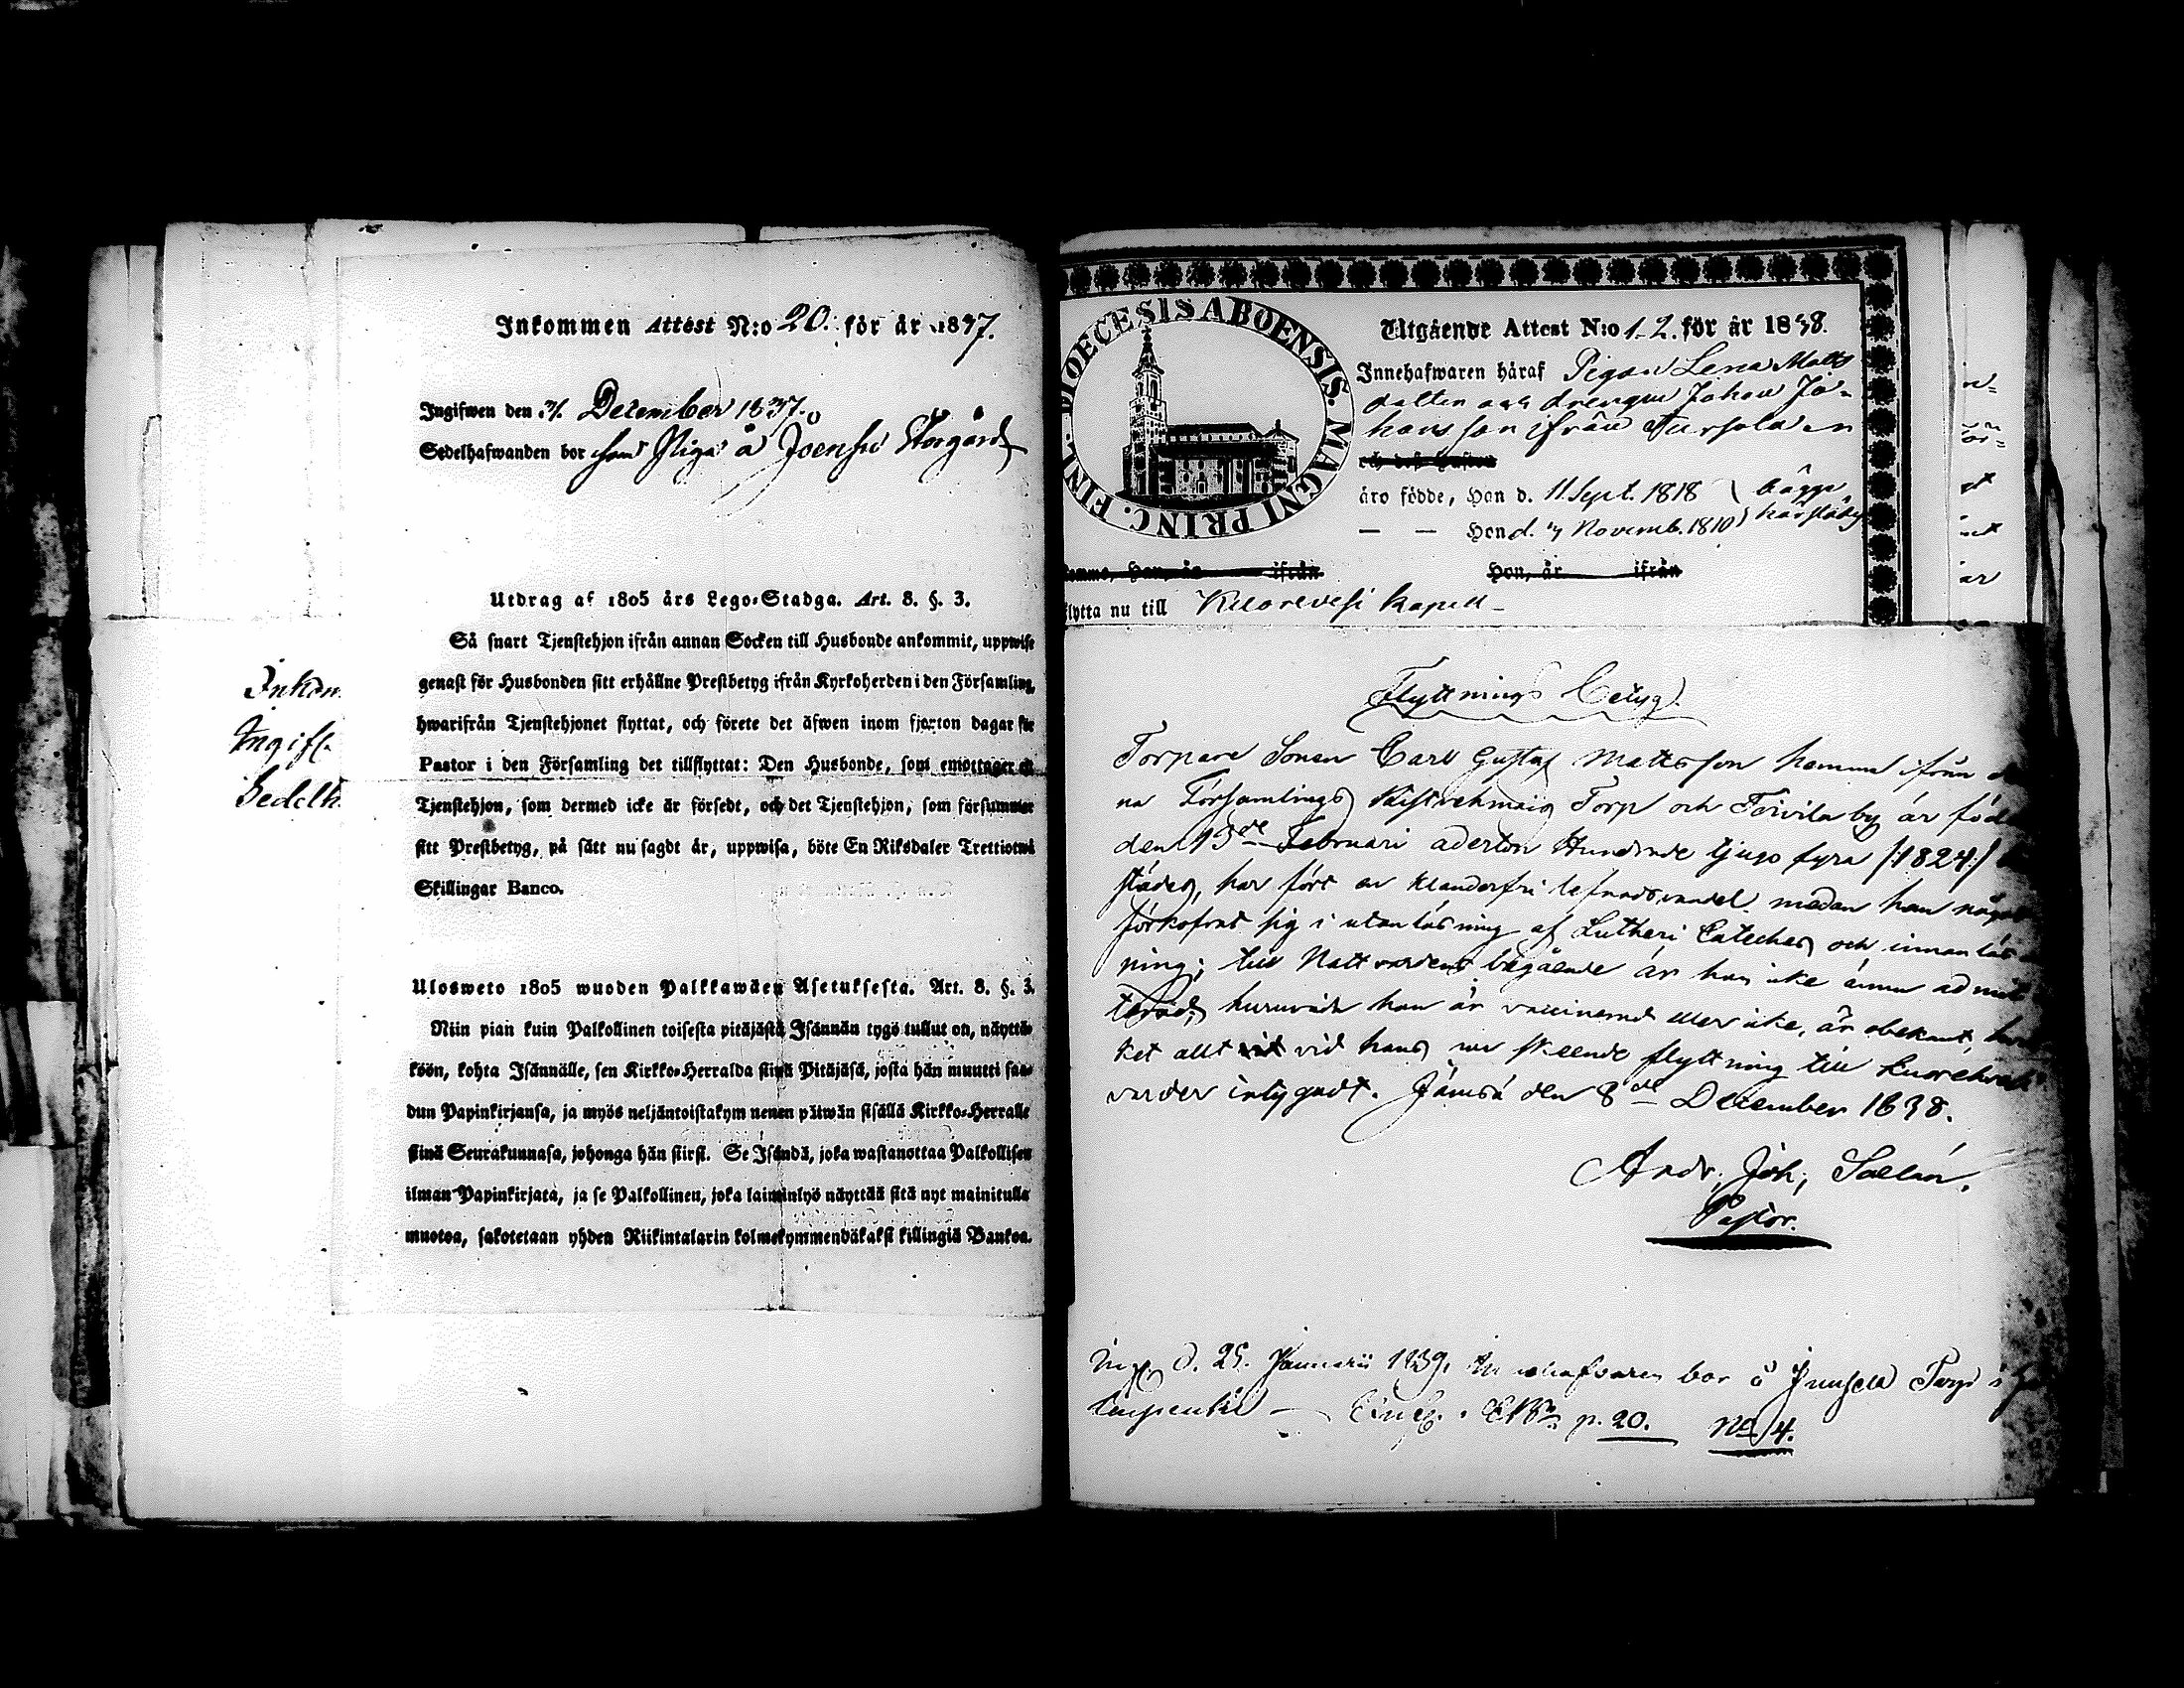 Inkommen Attest N:o 20. för år 1837.
Ingifwen den 31. December 1837.
Sedelhafwanden bor som Piga å Joensu Storgård
Utdrag af 1805 års Lego-Stadga. Art. 8. §. 3.
Så snart Tjenstehjon ifrån annan Socken till Husbonde ankommit, uppwise
genast för Husbonden sitt erhållne Prestbetyg ifrån Kyrkoherden i den Församling,
hwarifrån Tjenstehjonet flyttat, och förete det äfwen inom fjorton dagar för
Pastor i den Församling det tillflyttat: Den Husbonde, som emottager ett
Tjenstehjon, som dermed icke är försedt, och det Tjenstehjon, som försummar
sitt Prestbetyg, på sätt nu sagdt är, uppwisa, böte En Riksdaler Trettiotwå
Skillingar Banco.
Ulosweto 1805 wuoden Palkkawäen Asetuksesta. Art. 8. §. 3.
Niin pian kuin Palkollinen toisesta pitäjästä Isännän tygö tullut on, näyttä-
köön, kohta Isännälle, sen Kirkko-Herralda siinä Pitäjäsä, josta hän muutti saa-
dun Papinkirjansa, ja myös neljäntoistakym nenen päiwän sisällä Kirkko-Herralle
siinä Seurakunnasa, johonga hän siirst. Se Isändä, joka wastanottaa Palkollisen
ilman Papinkirjata, ja se Palkollinen, joka laiminlyö näyttää sitä nyt mainitulla
muotoa, sakotetaan yhden Riikintalarin kolmekymmendäkaksi killingiä Bankoa.
Inkom
Ingifv
Sedelh
FINL. DIOECESIS ABOENSIS. MAGNI PRINC.
Utgående Attest N:o 12. för år 1838.
Innehafwaren häraf Pigan Lena Matts
dotter och drengen Johan Jo-
hansson ifrån
äro födde, Han d. 11 Sept. 1818 bägge
— — Hon d. 7 Novemb. 1810 härstädes
Han, år ifrån Hon, år ifrån
flytta nu till Kuorevesi Kapell
Flyttnings Betyg.
Torpare Sonen Carl Gustaf Mattsson hemma ifrån den
na Församlings Torp och by är född
den 13de Februari aderton Hundrade tjugo fyra /:1824:/
städes, har fört en klanderfri lefnadsvandel medan han något
förkofrat sig i utanläsning af Lutheri Cateches och innanläs
ning; till Nattvardens begående är han icke ännu admit
terad; huruvida han är vaccinerad eller icke, är obekant,
ket allt vid hans nu skeende flyttning till Kuorehvesi
varder intygadt. Jämsä den 8de December 1838.
Andr. Joh. Sallén.
Pastor.
Ing. d. 25. Januarii 1839. Innehafvaren bor å Torp
p. 20. No 4.